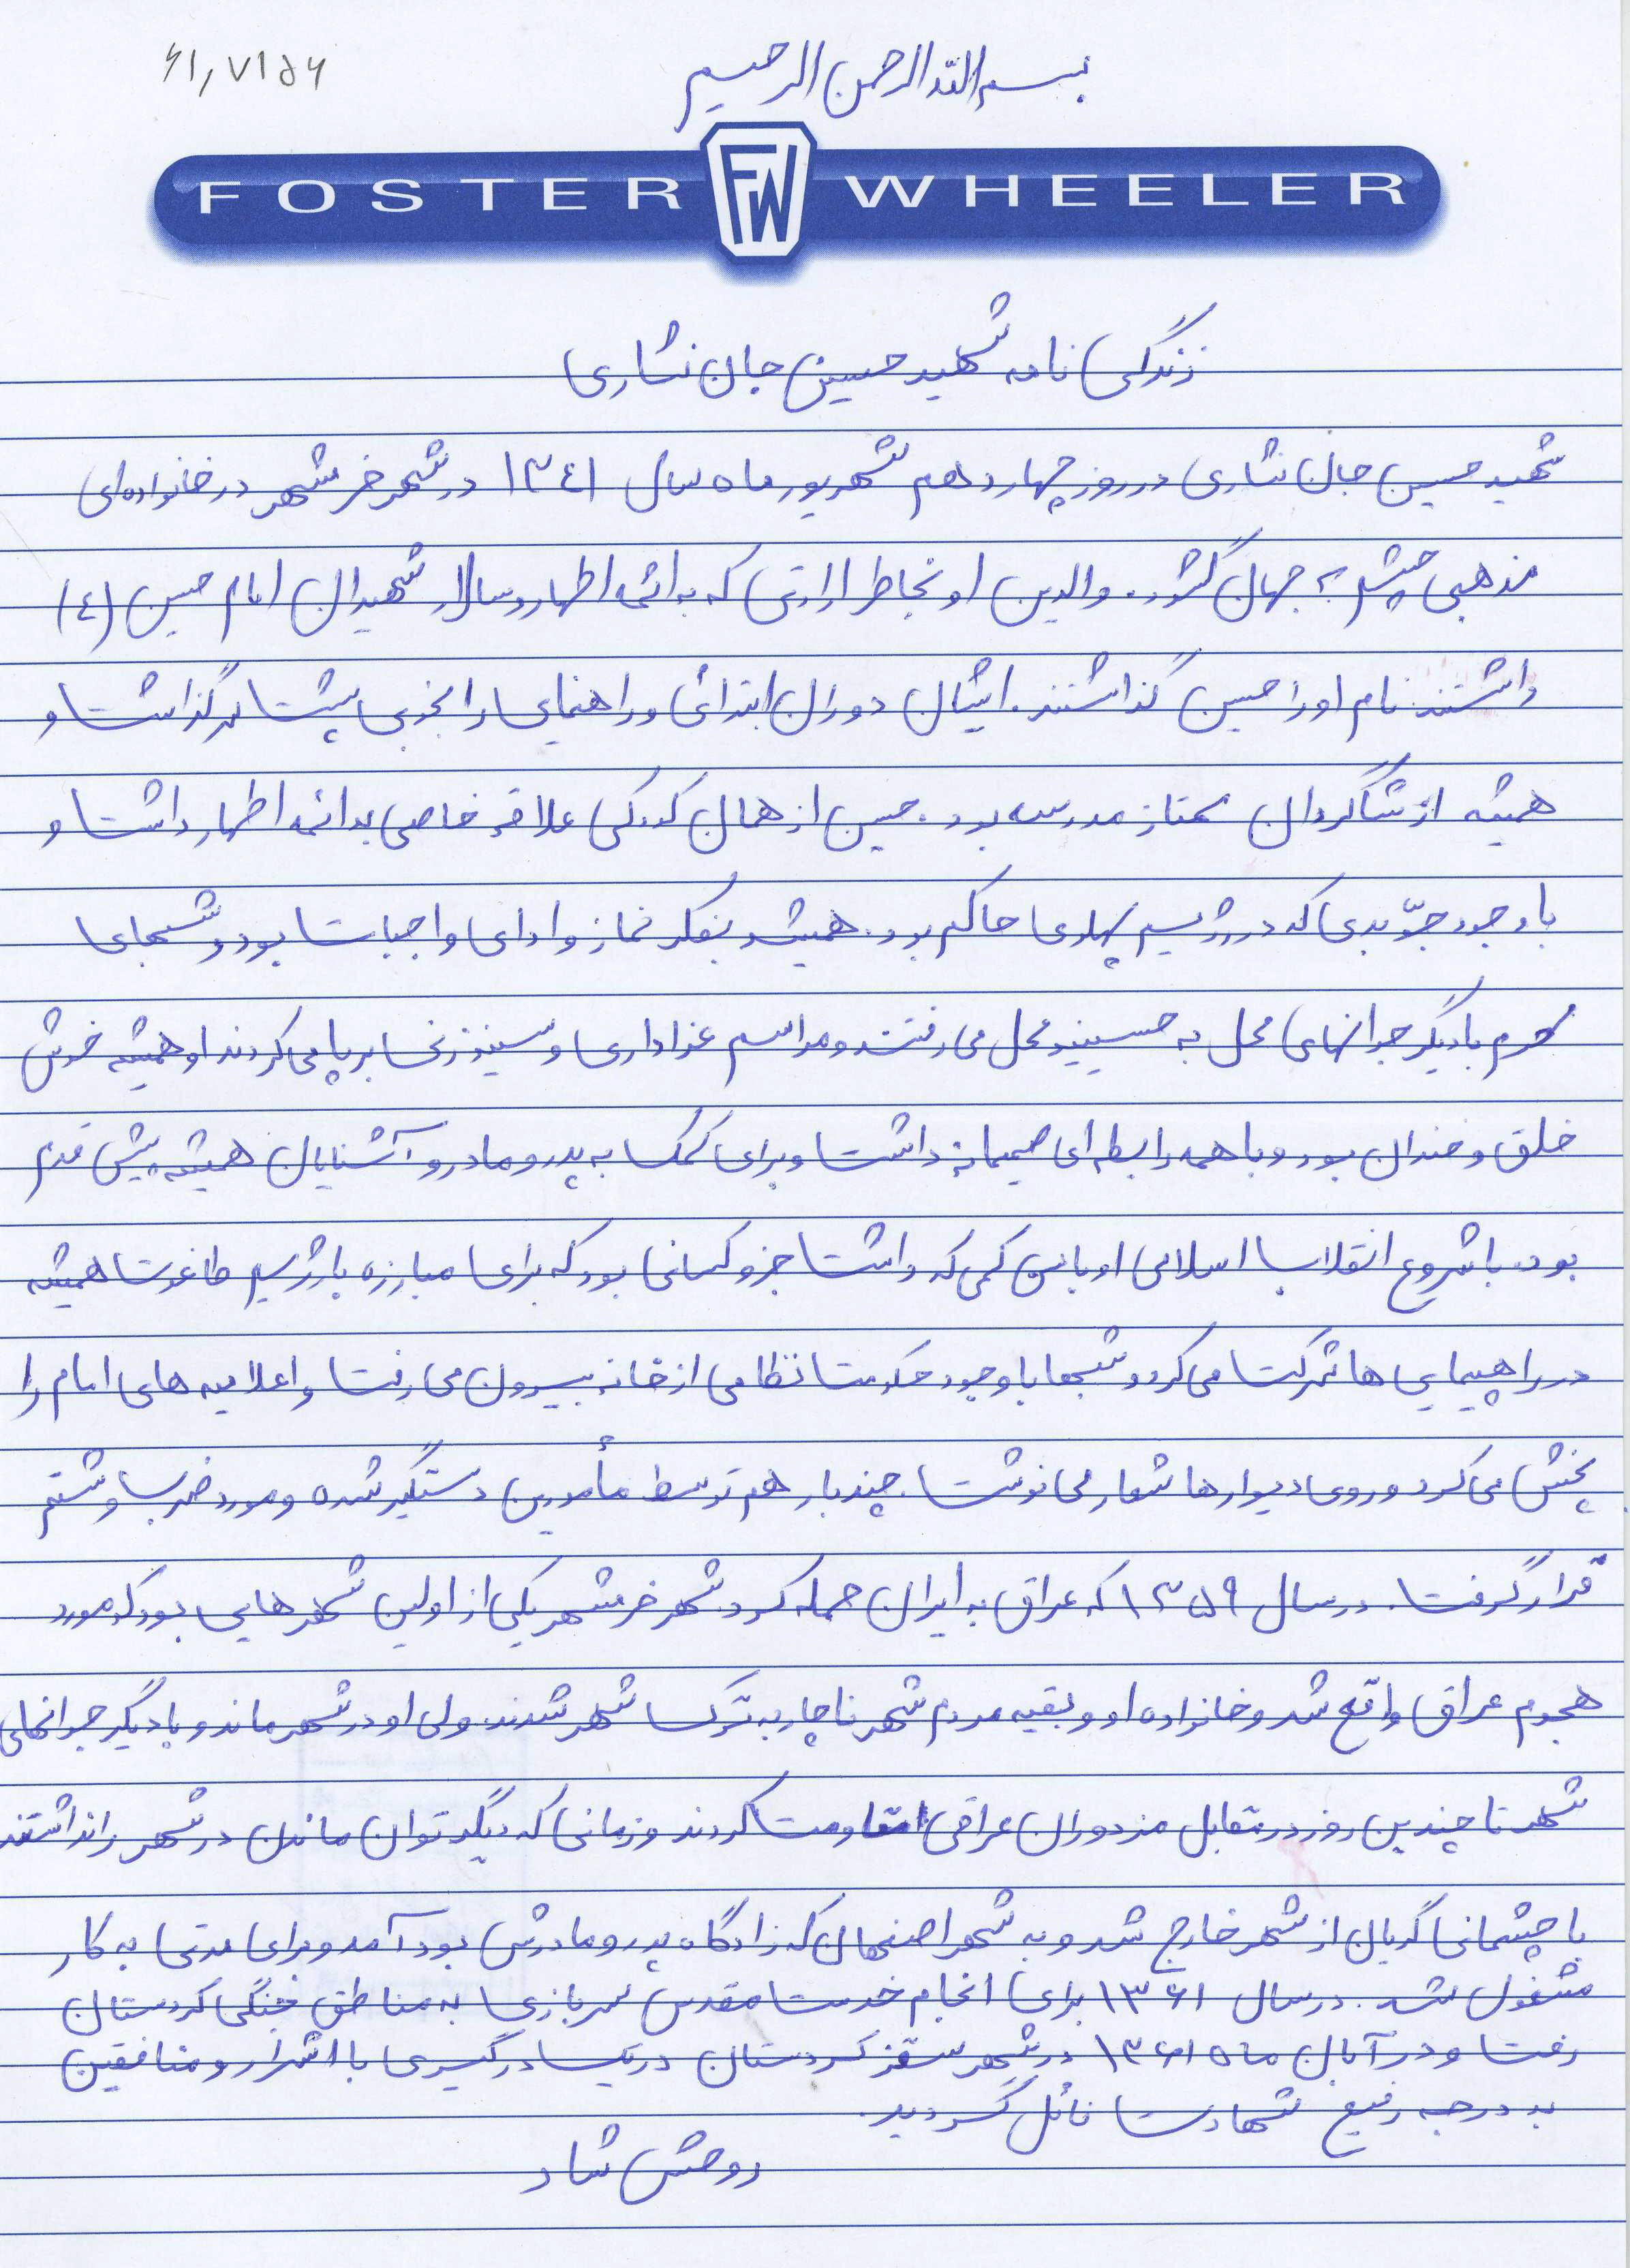 بسم الله الرحمن الرحیم
۶۱,۷۱۵۶
FOSTER FW WHEELER
زندگی نامه شهید حسین جان نثاری
شهید حسین جان نثاری در روز چهاردهم شهریور ماه سال ۱۳٤۱ در شهر خرمشهر در خانواده‌ای
مذهبی چشم به جهان گشود. والدین او بخاطر ارادتی که به ائمه اطهار و سالار شهیدان امام حسین (ع)
داشتند نام او را حسین گذاشتند. ایشان دوران ابتدائی و راهنمایی را بخوبی پشت سر گذاشت و
همیشه از شاگردان ممتاز مدرسه بود. حسین از همان کودکی علاقه خاصی به ائمه اطهار داشت و
با وجود جوّ بدی که در رژیم پهلوی حاکم بود. همیشه بفکر نماز و ادای واجبات بود و شبهای
محرم با دیگر جوانهای محل به حسینیه محل می رفتند و مراسم عزاداری و سینه زنی برپا می کردند او همیشه خوش
خلق و خندان بود و با همه رابطه ای صمیمانه داشت و برای کمک به پدر و مادر و آشنایان همیشه پیش قدم
بود. با شروع انقلاب اسلامی او با سن کمی که داشت جزو کسانی بود که برای مبارزه با رژیم طاغوت همیشه
در راهپیمایی ها شرکت می کرد و شبها با وجود حکومت نظامی از خانه بیرون می رفت و اعلامیه های امام را
پخش می کرد و روی دیوارها شعار می نوشت. چند بار هم توسط مأمورین دستگیر شده و مورد ضرب و شتم
قرار گرفت. در سال ۱۳۵۹ که عراق به ایران حمله کرد شهر خرمشهر یکی از اولین شهرهایی بود که مورد
هجوم عراق واقع شد و خانواده او و بقیه مردم شهر ناچار به ترک شهر شدند. ولی او در شهر ماند و با دیگر جوانهای
شهر تا چندین روز در مقابل مزدوران عراقی مقاومت کردند و زمانی که دیگر توان ماندن در شهر را نداشتند
با چشمانی گریان از شهر خارج شد و به شهر اصفهان که زادگاه پدر و مادرش بود آمد و برای مدتی به کار
مشغول شد. در سال ۱۳۶۱ برای انجام خدمت مقدس سربازی به مناطق جنگی کردستان
رفت و در آبان ماه ۱۳۶۱ در شهر سقز کردستان در یک درگیری با اشرار و منافقین
به درجه رفیع شهادت نائل گردید.
روحش شاد